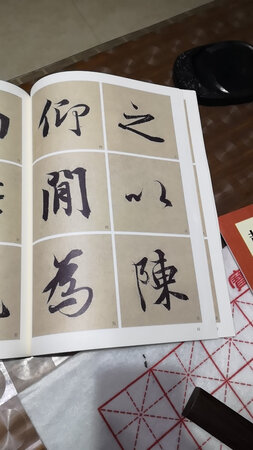 仰之
閒以
為陳